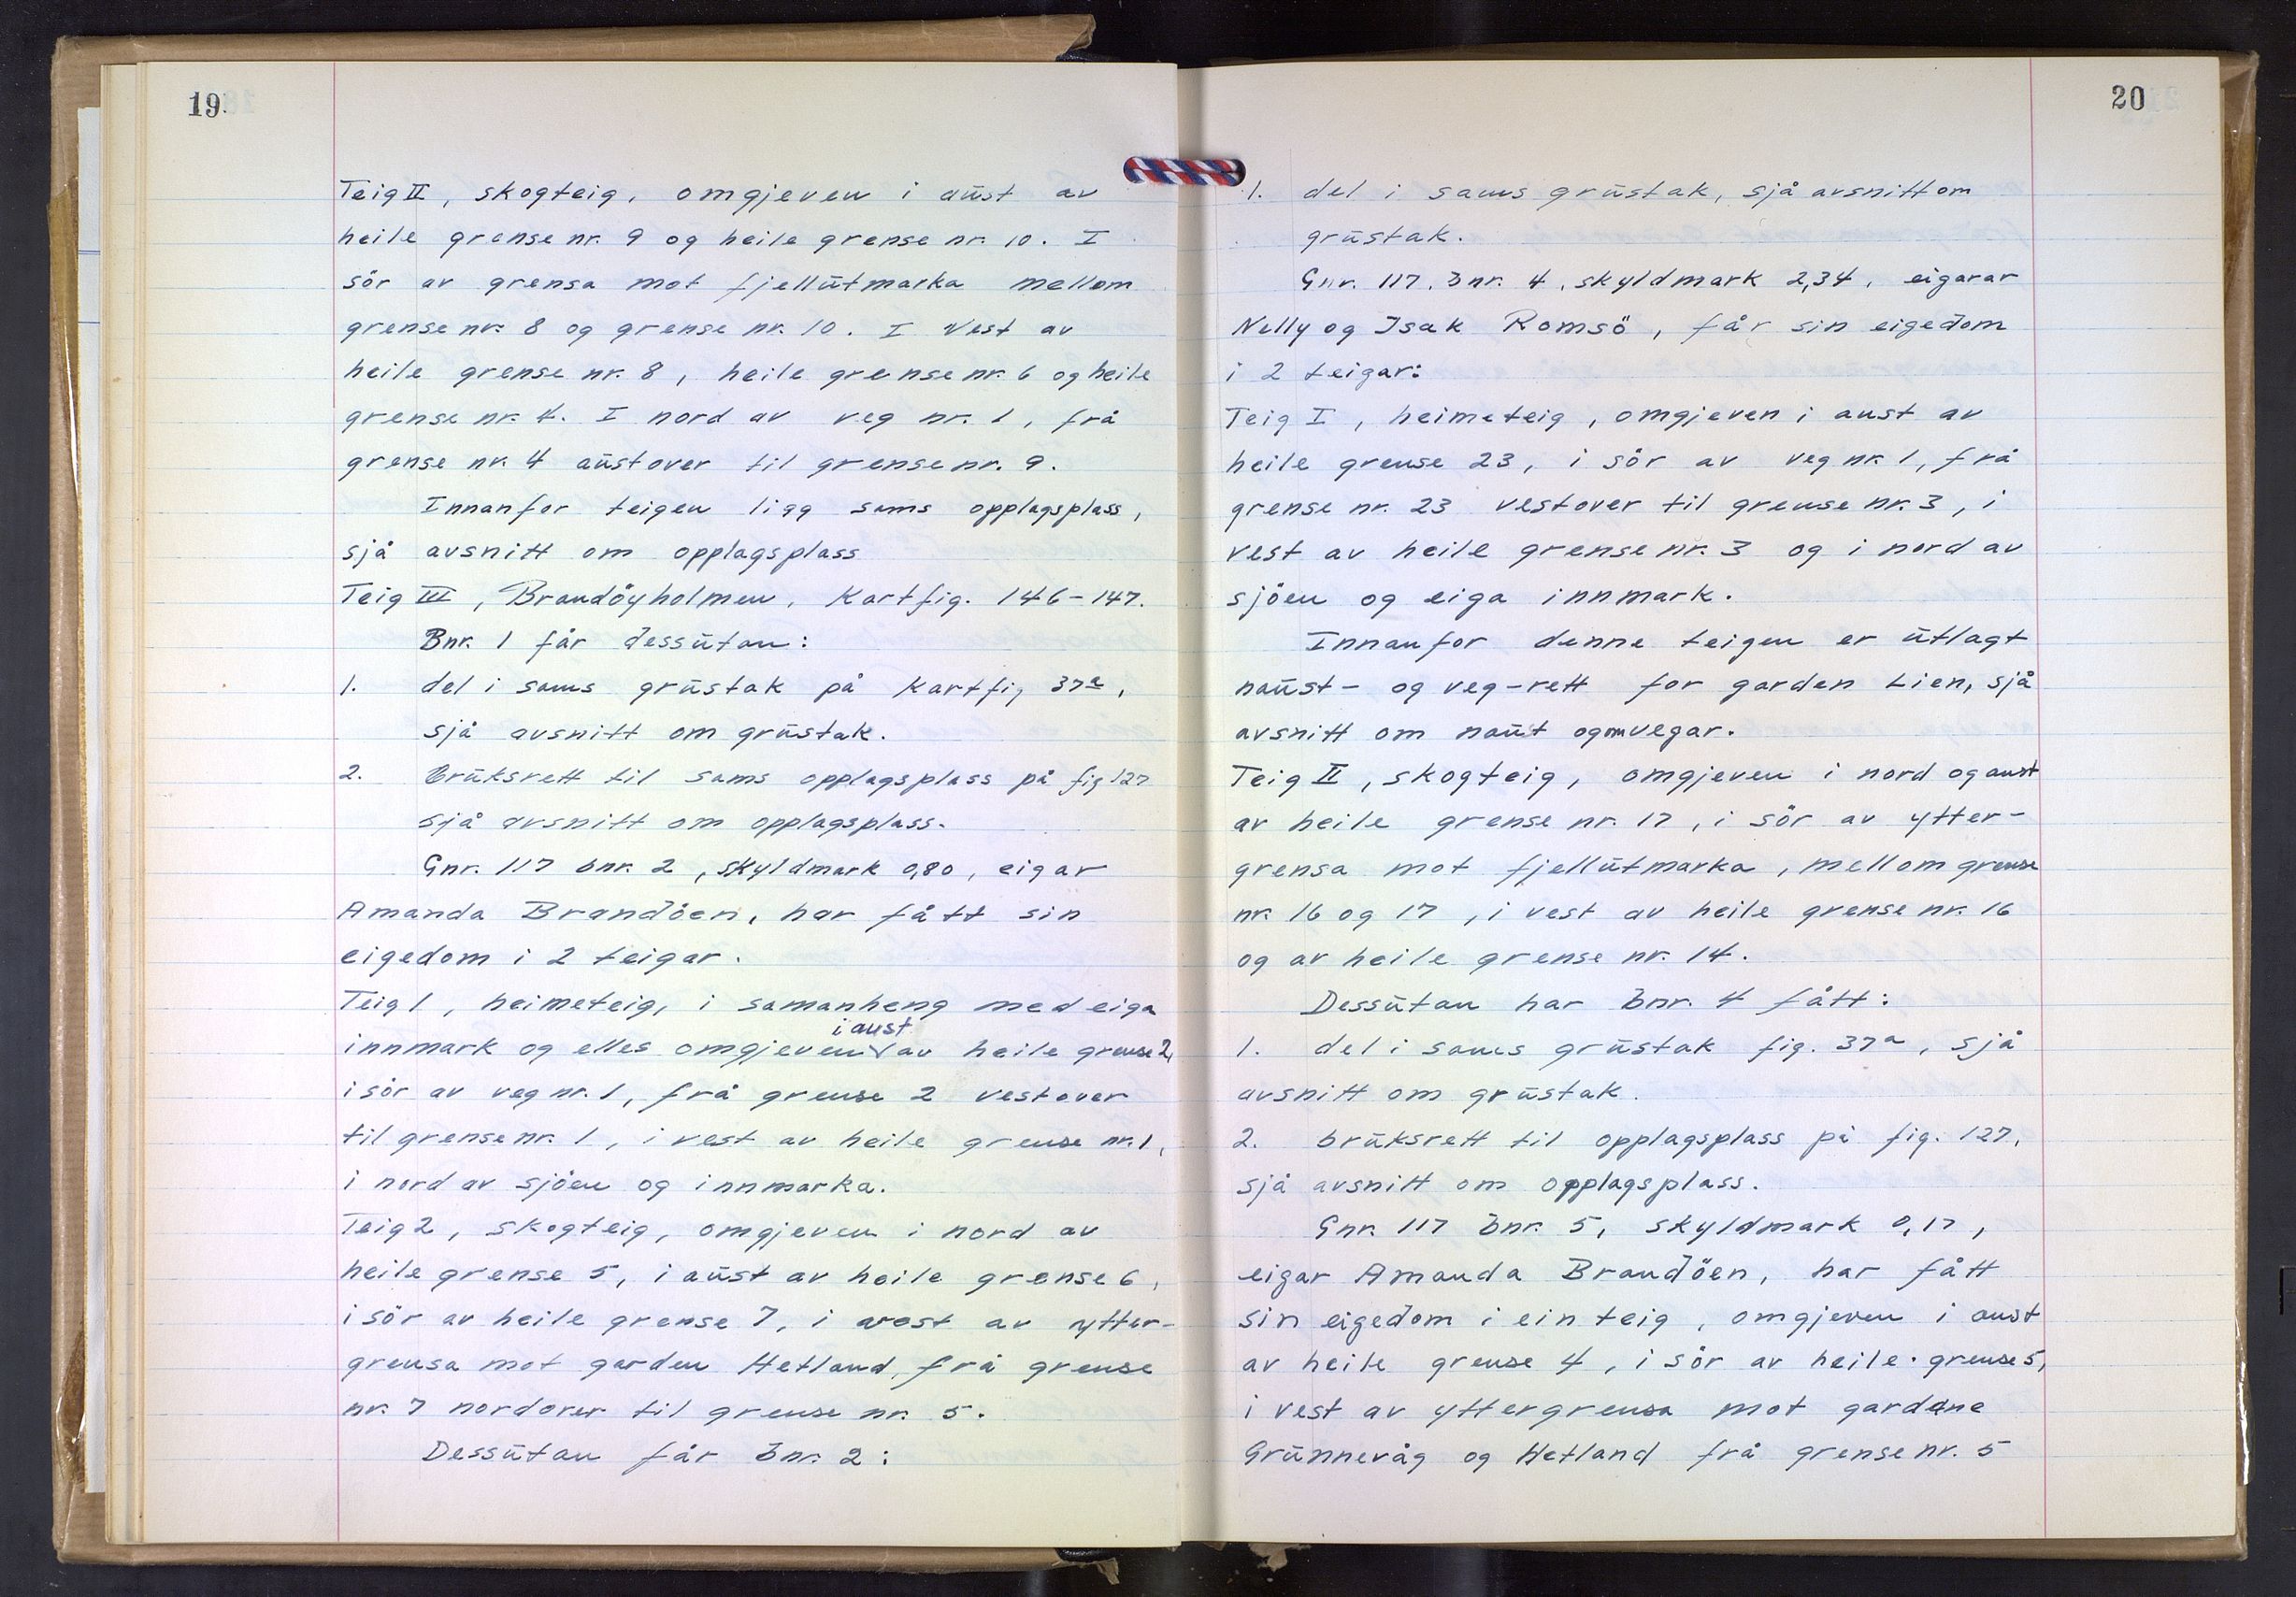 19
Teig II, skogteig, omgjeven i aust av
heile grense nr. 9 og heile grense nr. 10. I
sör av grensa mot fjellutmarka mellom
grense nr. 8 og grense nr. 10. I Vest av
heile grense nr. 8, heile grense nr. 6 og heile
grense nr. 4. I nord av veg nr. 1, frå
grense nr. 4 austover til grense nr. 9.
Innanfor teigen ligg sams opplagsplass,
sjå avsnitt om opplagsplass
Teig III, Brandöyholmen, Kartfig. 146-147.
Bnr. 1 får dessutan:
1. del i sams grustak på Kartfig 37a,
sjå avsnitt om grustak.
2. bruksrett til sams opplagsplass på fig 127
sjå avsnitt om opplagsplass.
Gnr. 117 bnr. 2, skyldmark 0,80, eigar
Amanda Brandöen, har fått sin
eigedom i 2 teigar.
Teig 1, heimeteig, i samanheng med eiga
innmark og elles omgjeven i aust av heile grense 2,
i sör av veg nr. 1, frå grense 2 vestover
til grense nr. 1, i vest av heile grense nr. 1,
i nord av sjöen og innmarka.
Teig 2, skogteig, omgjeven i nord av
heile grense 5, i aust av heile grense 6,
i sör av heile grense 7, i vest av ytter-
grensa mot garden Hetland, frå grense
nr. 7 nordover til grense nr. 5.
Dessutan får bnr. 2:
20
1. del i sams grustak, sjå avsnitt om
grustak.
Gnr. 117, bnr. 4, skyldmark 2,34, eigarar
Nelly og Isak Romsö, får sin eigedom
i 2 teigar:
Teig I, heimeteig, omgjeven i aust av
heile grense 23, i sör av veg nr. 1, frå
grense nr. 23 vestover til grense nr. 3, i
vest av heile grense nr. 3 og i nord av
sjöen og eiga innmark.
Innanfor denne teigen er utlagt
naust- og veg-rett for garden Lien, sjå
avsnitt om naut og om vegar.
Teig II, skogteig, omgjeven i nord og aust
av heile grense nr. 17, i sör av ytter-
grensa mot fjellutmarka, mellom grense
nr. 16 og 17, i vest av heile grense nr. 16
og av heile grense nr. 14.
Dessutan har bnr. 4 fått:
1. del i sams grustak fig. 37a, sjå
avsnitt om grustak.
2. bruksrett til opplagsplass på fig. 127,
sjå avsnitt om opplagsplass.
Gnr. 117 bnr. 5, skyldmark 0,17,
eigar Amanda Brandöen, har fått
sin eigedom i ein teig, omgjeven i aust
av heile grense 4, i sör av heile grense 5,
i vest av yttergrensa mot gardane
Grunnevåg og Hetland frå grense nr. 5